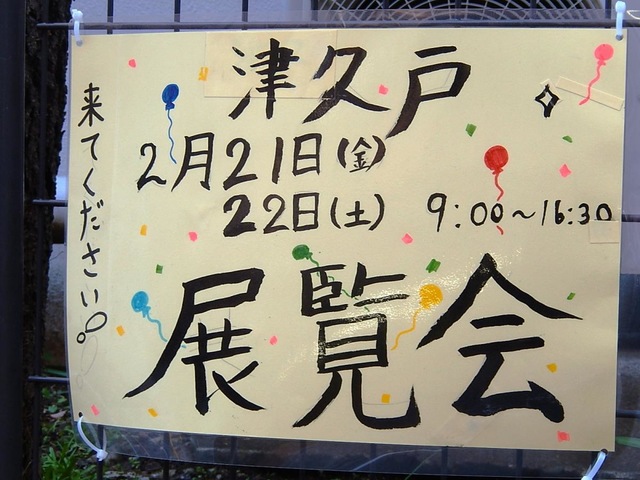 津久戸
2月21日(金)
22日(土) 9:00~16:30
展覧会
来てください。